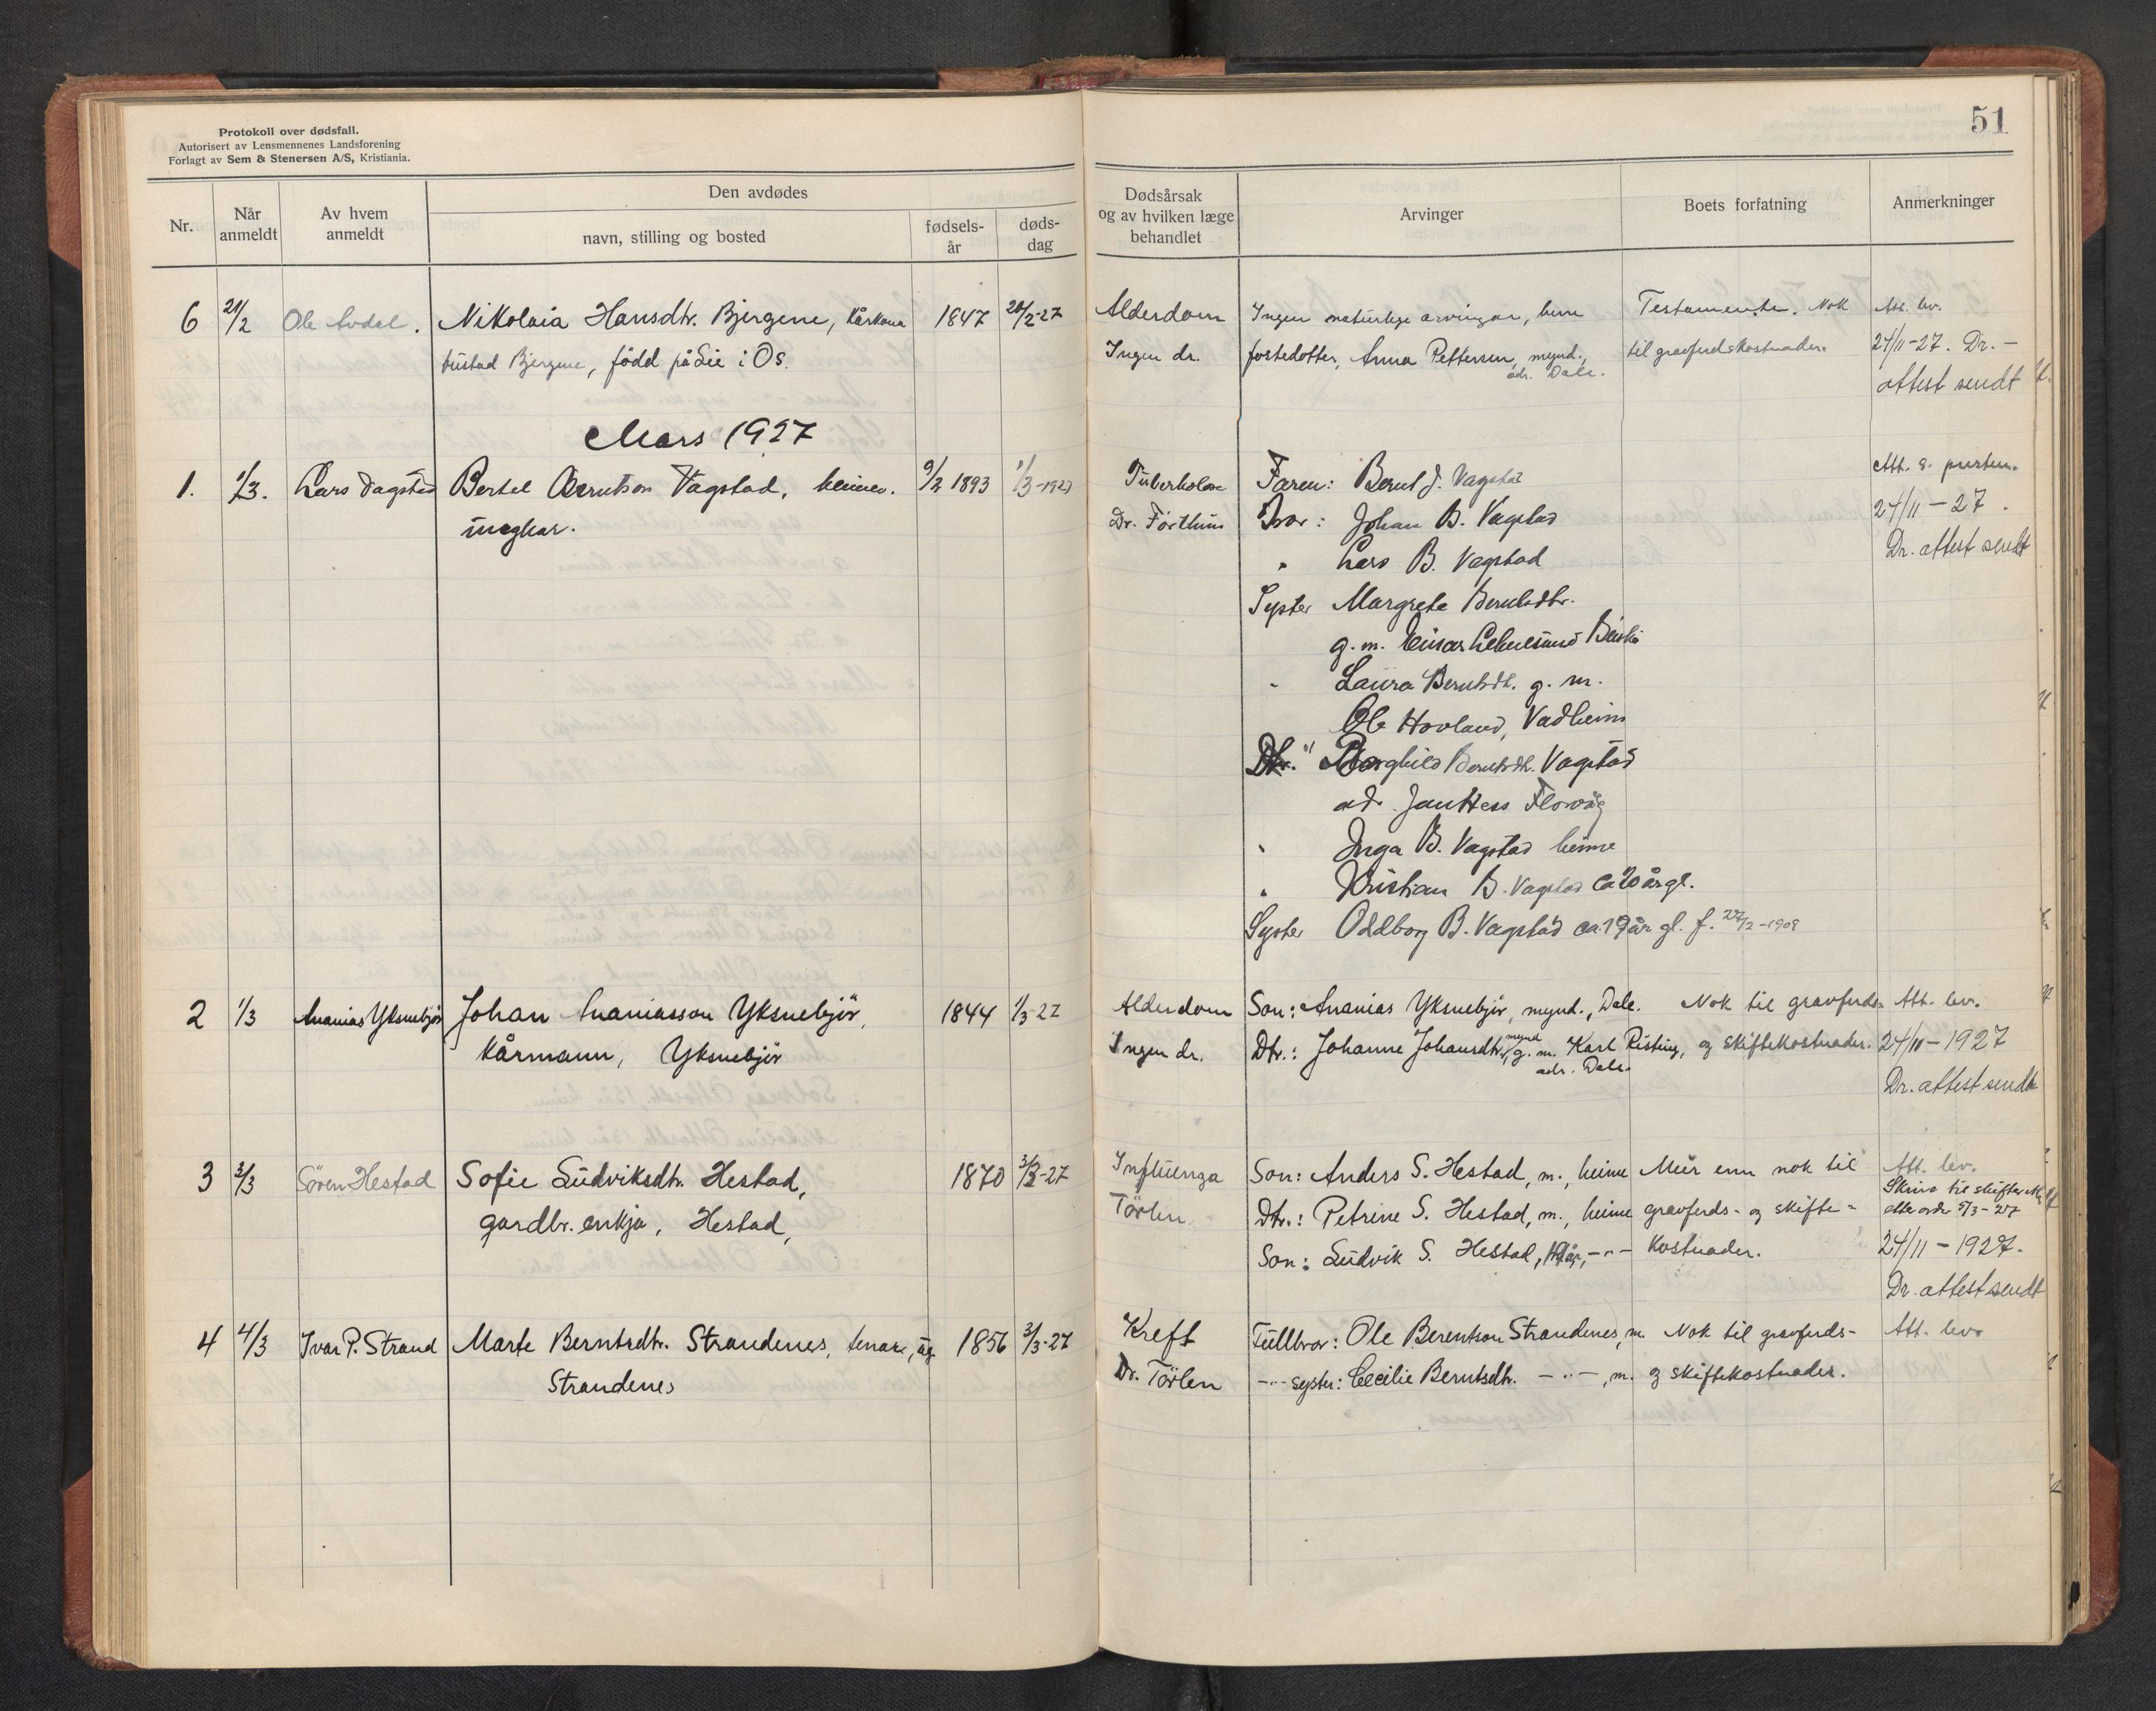 Protokoll over dødsfall.
Autorisert av Lensmennenes Landsforening
Forlagt av Sem & Stenersen A/S, Kristiania.
51
Nr.
Når anmeldt
Av hvem anmeldt
Den avdødes
navn, stilling og bosted
fødsels-år
døds-dag
Dødsårsak og av hvilken læge behandlet
Arvinger
Boets forfatning
Anmerkninger
6 21/2 Ole Avdal. Nikolaia Hansdtr. Bjergene, kårkona 1847 20/2-27 Alderdom Ingen naturlege arvingar, berre Testamente. Nok Att. lev.
bustad Bjergene, född på Lie i Os. Ingen dr. fostedotter, Anna Pettersen, mynd., til gravferdskostnader. 24/11-27. Dr. -
adr. Dale. attest sendt
Mars 1927
1. 1/3. Lars Vagstad Bertel Berntson Vagstad, heimev. 9/2 1893 1/3-1927 Tuberkolose Faren: Bernt J. Vagstad Att. s. presten.
ungkar. Dr. Förthun Bror: Johan B. Vagstad 24/11-27.
" Lars B. Vagstad Dr. attest sendt
Syster Margrete Berntsdtr.
g. m. Einar
- Laura Berntsdt. g. m.
Ole Hovland, Vadheim
" Borghild Berntsdt. Vagstad
adr. Florvåg
" Inga B. Vagstad heime
" Kristian B. Vagstad ca 20 år gl.
Syster Oddborg B. Vagstad ca. 19 år gl. f. 27/2-1908
2 1/3 Ananias Yksnebjör Johan Ananiasson Yksnebjör, 1844 1/3-27 Alderdom Son: Ananias Yksnebjör, mynd., Dale. Nok til gravferds- Att. lev.
kårmann, Yksnebjör Ingen dr. Dtr.: Johanne Johansdtr. mynd g. m. Karl Risting, og skiftekostnader. 24/11-1927
adr. Dale. Dr. attest sendt
3 3/3 Sören Hestad Sofie Ludviksdtr. Hestad, 1870 3/3-27 Influenza Son: Anders S. Hestad, m., heime Meir enn nok til Att. lev.
gardbr. enkja, Hestad, Törlen Dtr.: Petrine S. Hestad, m., heime gravferds- og skifte- Skrive til skifter
etter ordr 5/3-27
Son: Ludvik S. Hestad, 19 år, -"- kostnader. 24/11-1927.
Dr. attest sendt
4 4/3 Ivar P. Strand Marte Berntsdtr. Strandenes, tenar, ug. 1856 3/3-27 Kreft Fullbror: Ole Berentson Strandenes, m. Nok til gravferds- Att. lev.
Strandenes Dr. Törlen -"- syster: Cecilie Berntsdtr. -"-, m. og skiftekostnader.